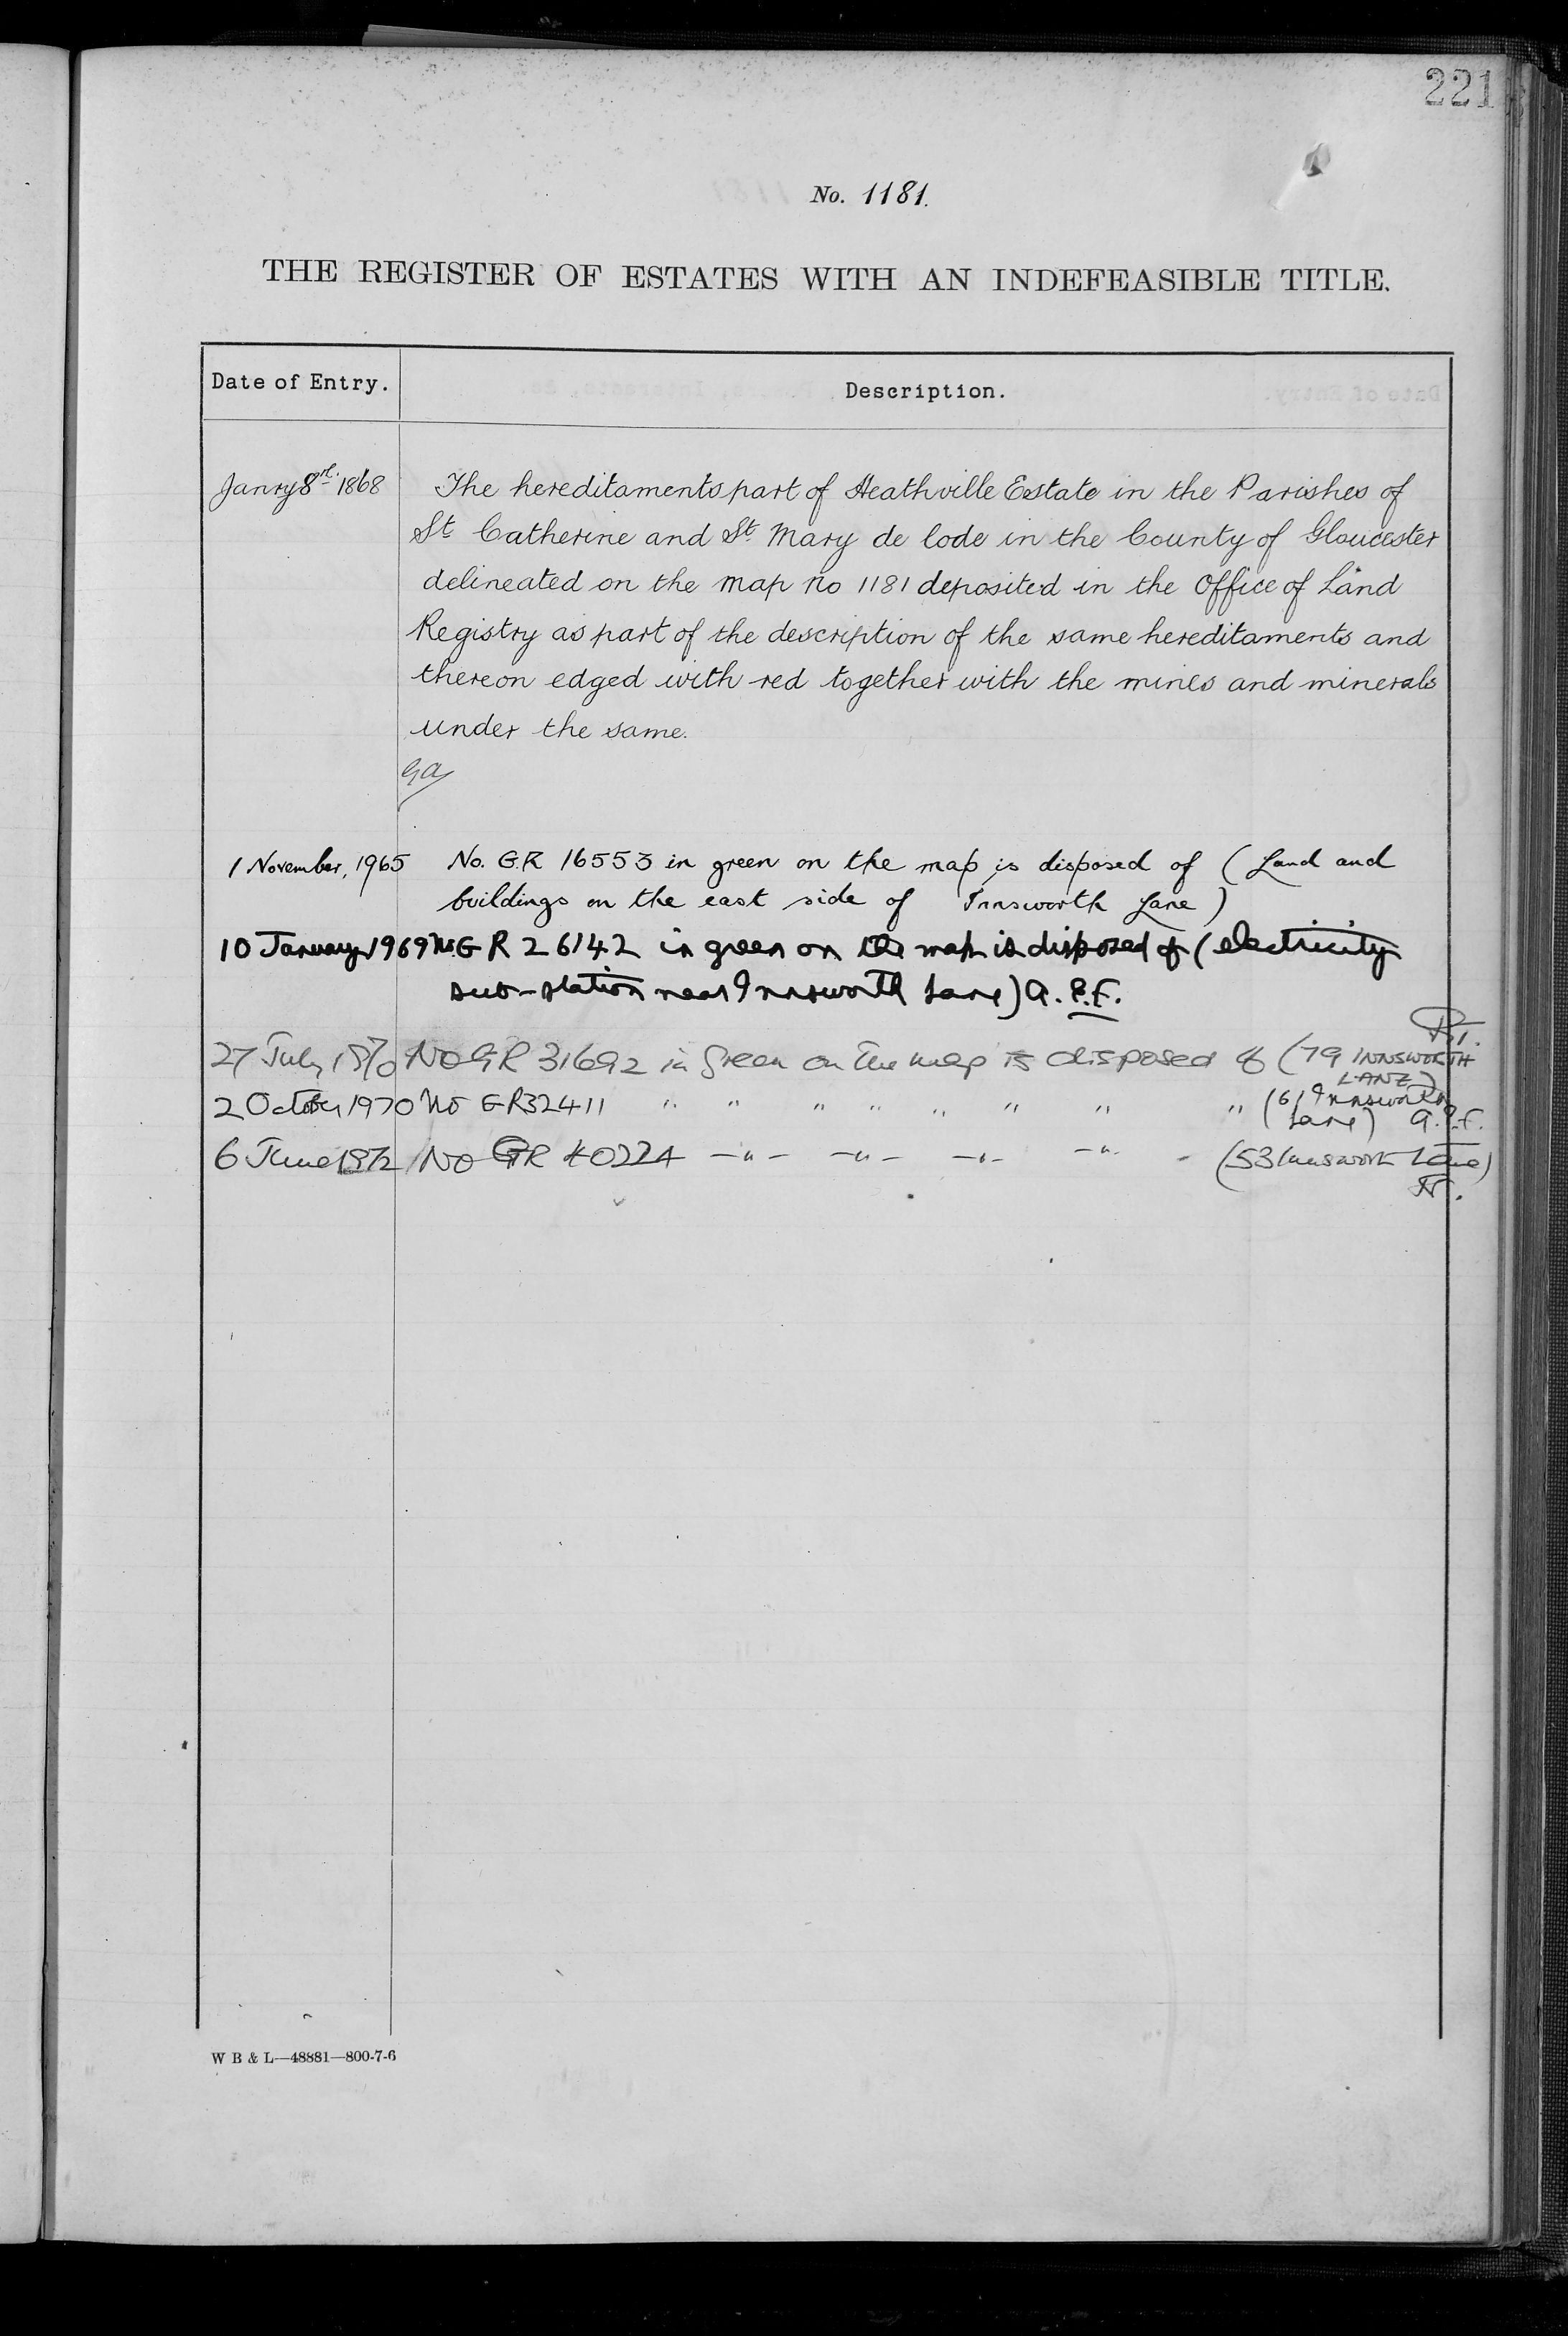 221
No. 1181.
THE REGISTER OF ESTATES WITH AN INDEFEASIBLE TITLE.
Date of Entry. Description.
Janry 8th 1868 The hereditaments part of Heathville Estate in the Parishes of
St. Catherine and St. Mary de lode in the County of Gloucester
delineated on the map no 1181 deposited in the Office of Land
Registry as part of the description of the same hereditaments and
thereon edged with red together with the mines and minerals
under the same.
1 November, 1965 No. G.R 16553 in green on the map is disposed of (Land and
buildings on the east side of Innsworth Lane)
10 January 1969 No. GR 26142 in green on the map is disposed of (electricity
sub-station near Innsworth Lane) A.P.F.
27 July 1970 No GR 31692 in green on the map is disposed of (79 INNSWORTH
LANE)
2 October 1970 No GR32411 " " " " " " " " (61 Innsworth
Lane) A.P.F.
6 June 1972 No GR 40224 -"- -"- -"- -"- - (53 Innsworth Lane)
W B & L—48881—800-7-6